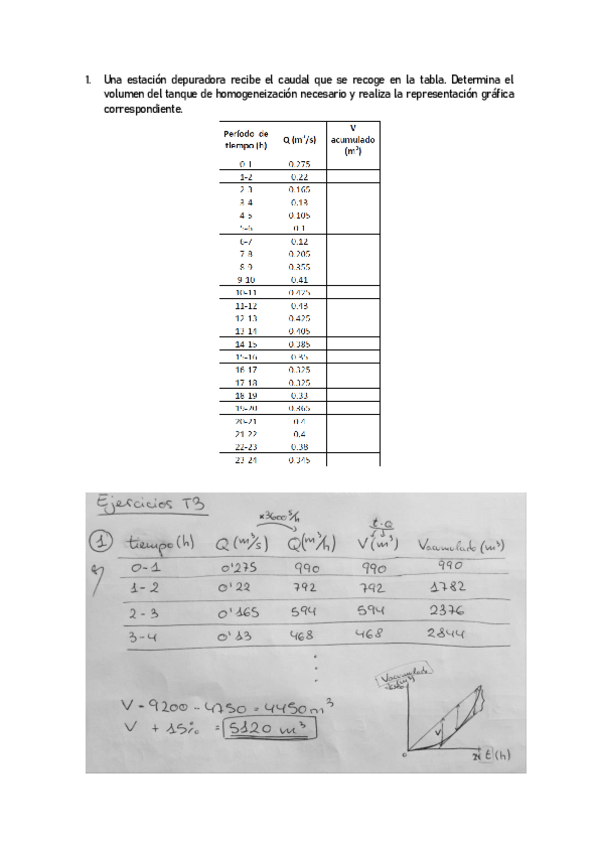 1. Una estación depuradora recibe el caudal que se recoge en la tabla. Determina el
volumen del tanque de homogeneización necesario y realiza la representación gráfica
correspondiente.
Período de tiempo (h) Q (m³/s) V acumulado (m³)
0-1 0.275
1-2 0.22
2-3 0.165
3-4 0.13
4-5 0.105
5-6 0.1
6-7 0.12
7-8 0.205
8-9 0.355
9-10 0.41
10-11 0.425
11-12 0.43
12-13 0.425
13-14 0.405
14-15 0.385
15-16 0.35
16-17 0.325
17-18 0.325
18-19 0.33
19-20 0.365
20-21 0.4
21-22 0.4
22-23 0.38
23-24 0.345
Ejercicios T3
×3600 s/h
t·Q
1 tiempo (h) Q (m³/s) Q (m³/h) V (m³) Vacumulado (m³)
0-1 0'275 990 990 990
1-2 0'22 792 792 1782
2-3 0'165 594 594 2376
3-4 0'13 468 468 2844
Vacumulado
V = 9200 - 4750 = 4450 m³
V + 15% = 5120 m³
V
0 24 t (h)